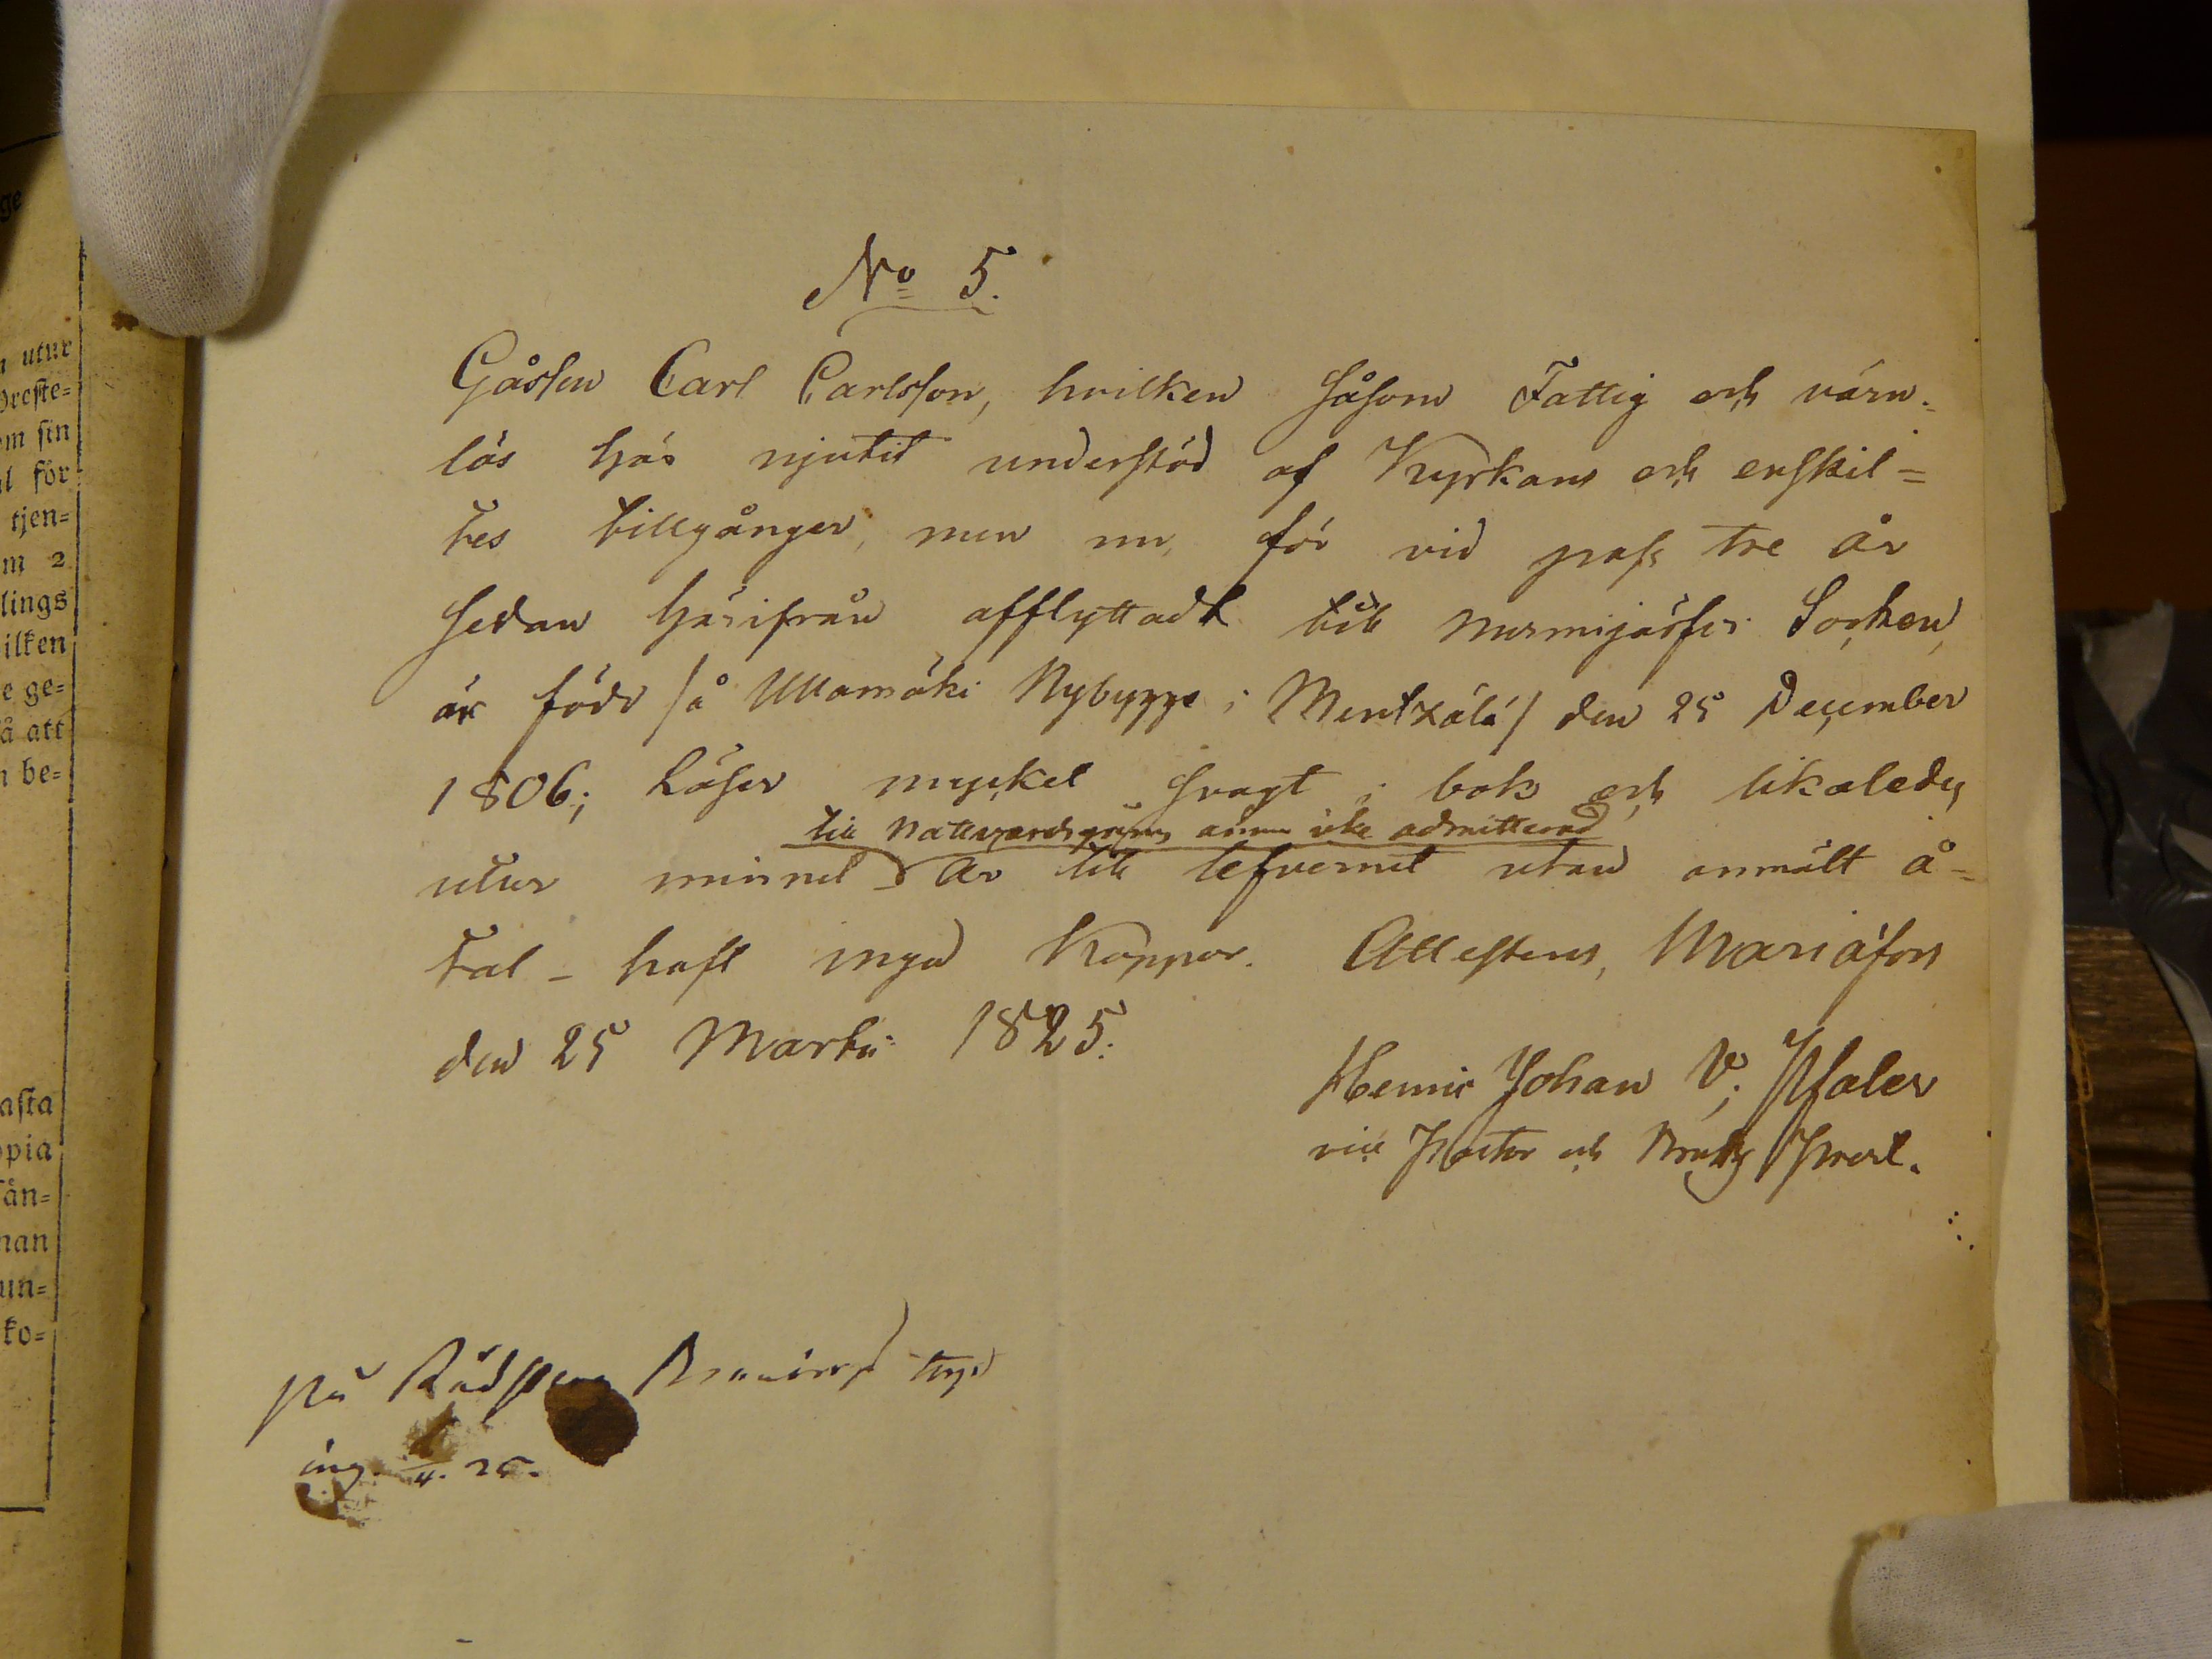 No 5.
Gåssen Carl Carlsson, hvilken såsom Fattig och värn-
lös här njutit understöd af Kyrkans och enskil=
tes tillgångar, men nu, för vid pass tre år
sedan härifrån afflyttadt till Nurmijärfvi Socken,
är född /å Ullamäki Nybygge i Mentzälä/ den 25 December
1806; Läser myckel svagt i bok och likaledes
till Nattvardsgång ännu icke admitterad
utur minnet Är till lefvernet utan anmält å=
tal - haft inga Koppor. Attesteras, Mariæfors
den 25 Martii 1825.
Henric Johan V. Pfaler
vice Pastor och Bruks Prest.
På
ing. 4. 25.
ge
utur
om sin
för
tjen=
m 2
lings
ilken
e ge=
å att
be=
asta
opia
än=
han
un=
ko=